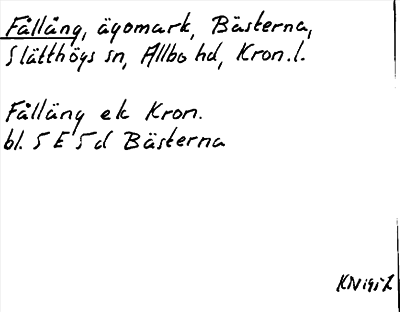 Fålläng, ägomark, Bästerna,
Slätthögs sn, Allbo hd, Kron.l.
Fålläng ek Kron.
bl. 5 E 5 d Bästerna